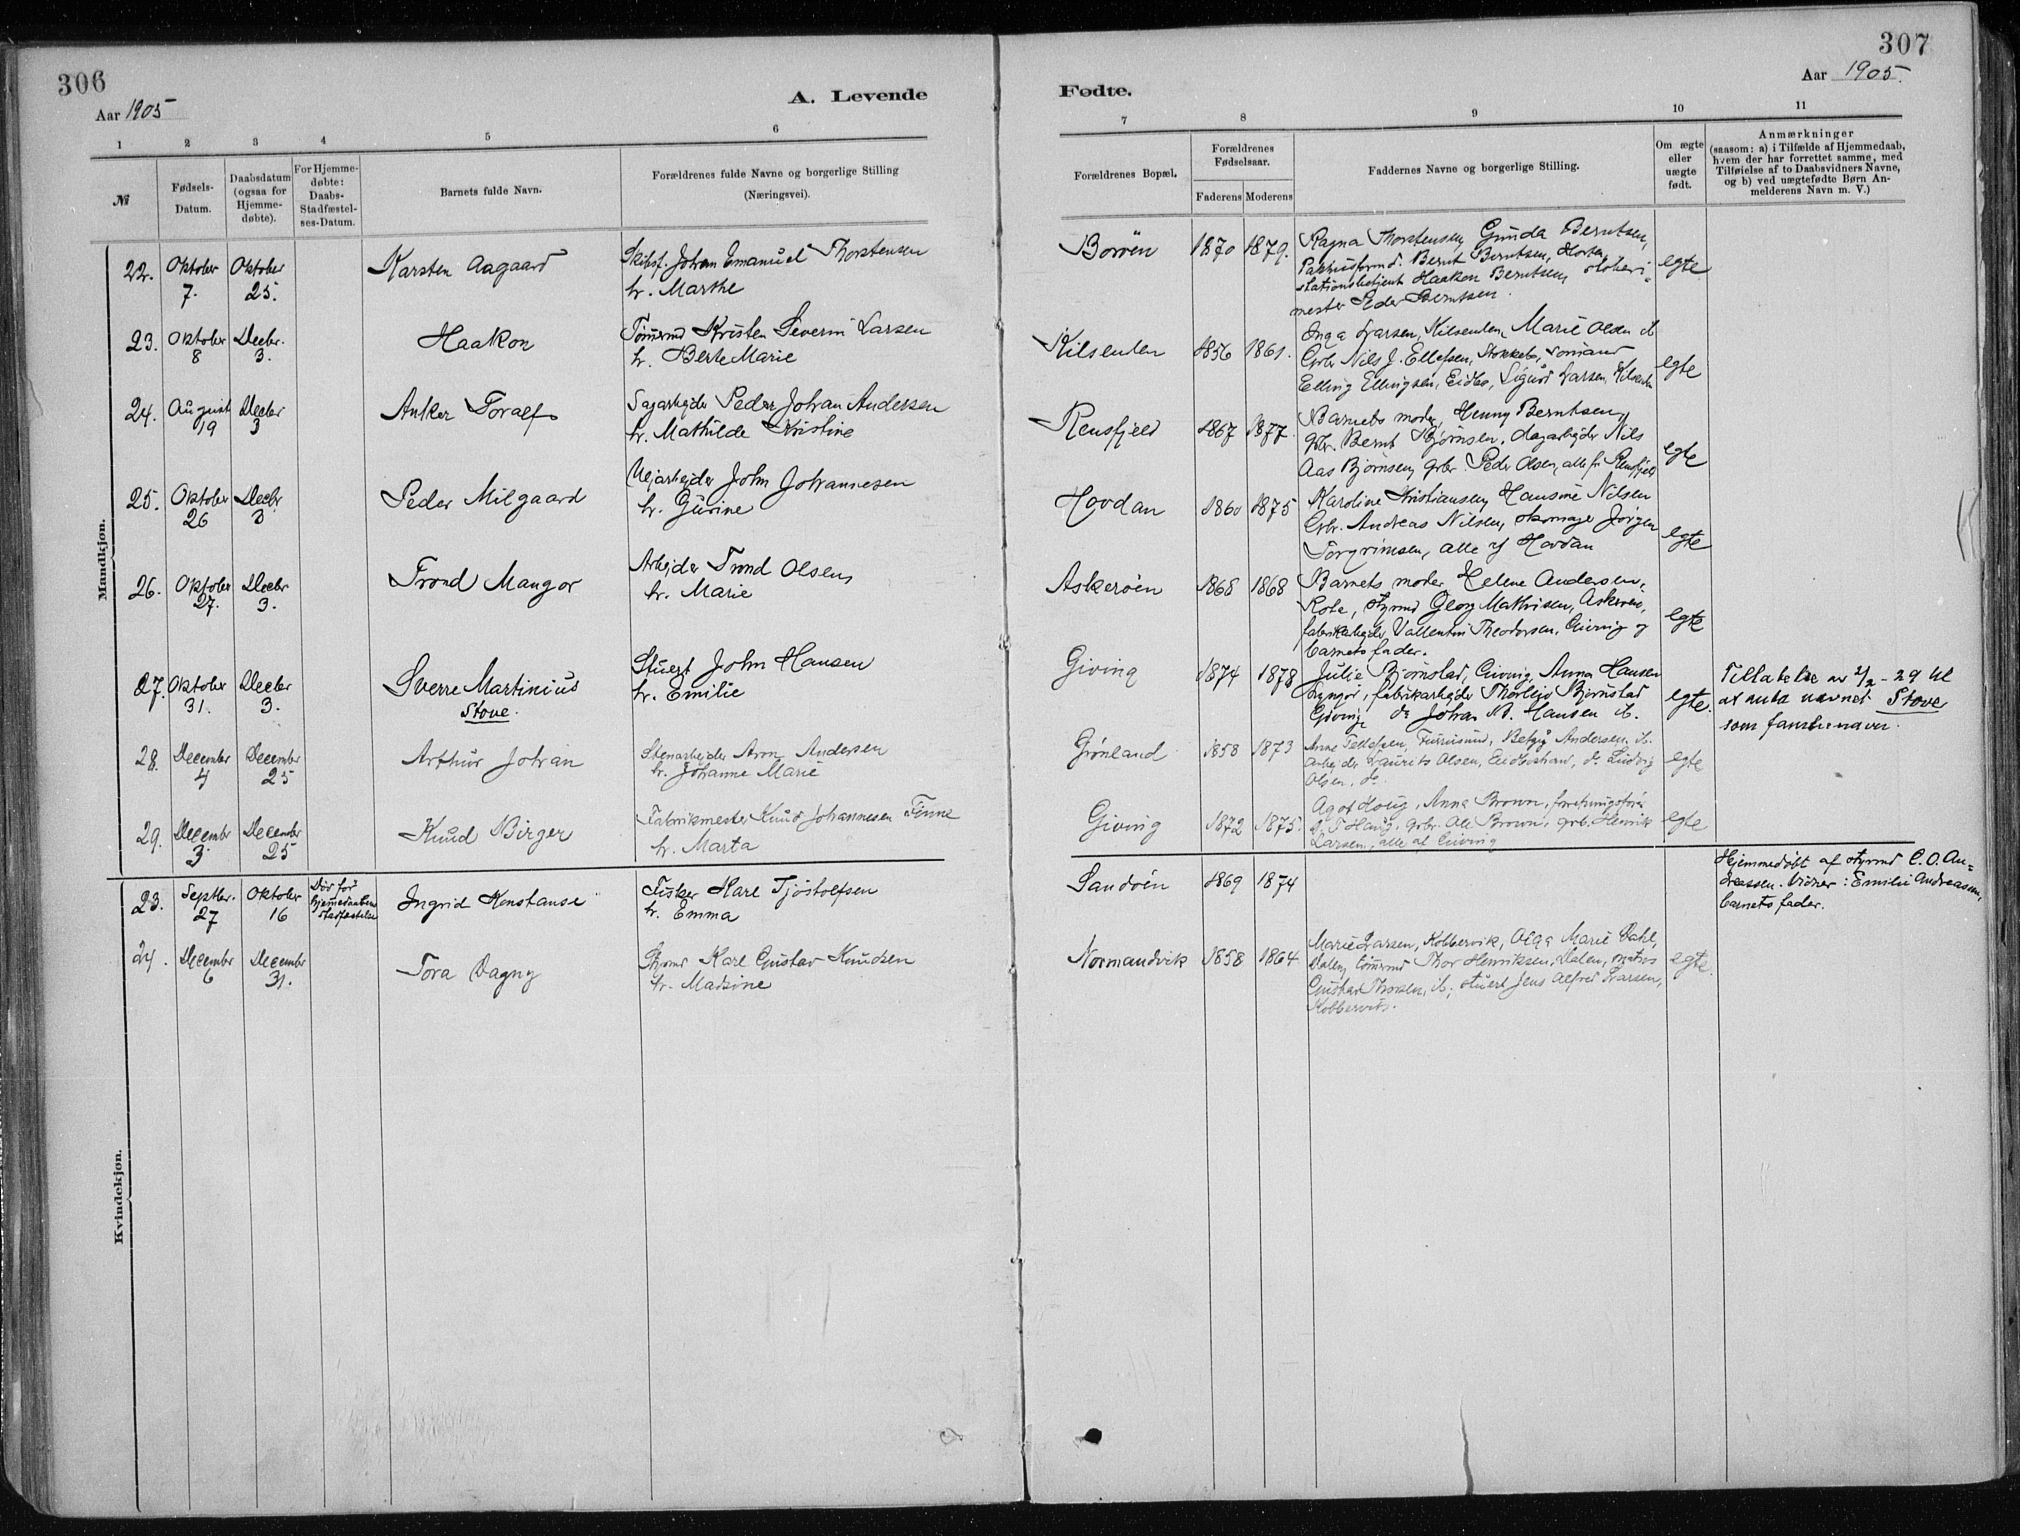 306
Aar 1905
A. Levende
1 2 3 4 5 6
№
Fødsels-
Datum.
Daabsdatum
(ogsaa for
Hjemme-
døbte).
For Hjemme-
døbte:
Daabs-
Stadfæstel-
ses-Datum.
Barnets fulde Navn.
Forældrenes fulde Navne og borgerlige Stilling
(Næringsvei).
Mandkjøn.
22. Oktober 7. Oktober 25. Karsten Aagaard
Skibsf. Johan Emanuel Thorstensen
h. Marthe
23. Oktober 8 Decbr. 3. Haakon
Tømmd Kristen Severin Larsen
h. Berte Marie
24. August 19 Decbr 3 Anker Toralf
Sagarbejder Peder Johan Andersen
h. Mathilde Kristine
25. Oktober 26 Decbr 3 Peder Milgaard
Vejarbejder John Johannesen
h. Gurine
26. Oktober 27. Decbr 3. Trond Mangor
Arbejder Trond Olsen
h. Marie
27. Oktober 31. Decbr 3. Sverre Martinius
Stove.
Stuert John Hansen
h. Emilie
28. December 4 December 25 Arthur Johan
Stenarbejder Aron Andersen
h. Johanne Marie
29. Decembr 3 December 25 Knud Birger
Fabrikmester Knud Johannesen Finne
h. Marta
Kvindekjøn.
23. Septbr. 27 Oktober 16 Død før
hjemmedaabens
stadfæstelse
Ingrid Konstanse
Fisker Karl Tjøstolfsen
h. Emma
24. Decembr 6 December 31. Tora Dagny
Styrmd Karl Gustav Knudsen
h. Madsine
307
Aar 1905.
Fødte.
7 8 9 10 11
Forældrenes Bopæl.
Forældrenes
Fødselsaar.
Faderens Moderens
Faddernes Navne og borgerlige Stilling.
Om ægte
eller
uægte
født.
Anmærkninger
(saasom: a) i Tilfælde af Hjemmedaab,
hvem der har forrettet samme, med
Tilføielse af to Daabsvidners Navne,
og b) ved uægtefødte Børn An-
melderens Navn m. V.)
Borøen 1870 1879.
Ragna Thorstensen, Gunda Berntsen,
Pakhusformd. Bernt Berntsen, Horten,
stationsbetjent Haakon Berntsen,
mester Peder Berntsen.
egte
Kilsenden 1856 1861.
Inga Larsen, Kilsenden, Marie Olsen
Grbr Nils J. Ellefsen, Stokkebo, sømand
Elling Ellingsen, Eidbo, Sigurd Larsen, Kilsenden
egte
Rensfjeld 1867 1877.
Barnets moder, Henny Berntsen,
grbr. Bernt Bjørnsen, dagarbejder Nils
Aas Bjørnsen, grbr. Peder Olsen, alle fr Rensfjeld
egte
Hovdan 1860 1875
Karoline Kristiansen, Hansine Nilsen
Grbr. Andreas Nilsen, skomager Jørgen
Torgrimsen, alle af Hovdan
egte
Askerøen 1868 1868
Barnets moder, Helene Andersen,
styrmd Georg Mathisen, Askerøen,
fabrikarbejder Vallentin Theodorsen, Giving og
barnets fader.
egte
Giving 1874 1878
Julie Bjørnstad, Giving, Anna Hansen
Lyngør, fabrikarbejder Thorleif Bjørnstad
Giving, do Johan M. Hansen
egte.
Tillatelse av 2/2-29 til
at anta navnet Stove
som familienavn.
Grønland 1858 1873
Anne Tellefsen, Furusund, Betzy Andersen,
arbejder Laurits Olsen, Eidbostrand, do Ludvig
Olsen, do.
egte
Giving 1872 1875.
Agot Houg, Anna Brown, forretningsfører
T Haug, grbr. Ole Brown, grb. Henrik
Larsen, alle af Giving
egte
Sandøen 1869 1874
Hjemmedøbt af styrmd C. O. An-
dreassen. Vidner: Emilie Andreassen,
barnets fader.
Normandvik 1858 1864
Marie Larsen, Kobbervik, Olga Marie Dahl,
Dalen, tømmrmd Thor Henriksen, Dalen, matros
Gustav Thorsen, stuert Jens Alfred Larsen,
Kobbervik.
egte.